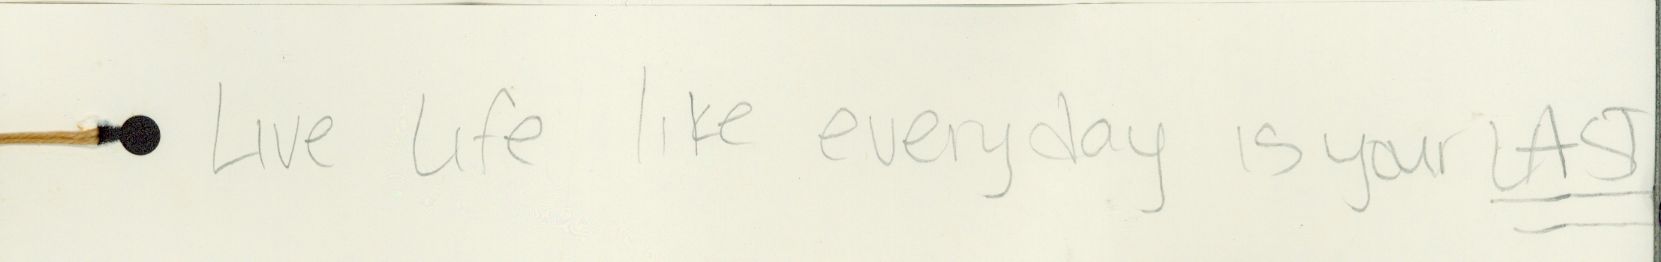 Live Life like everyday is your LAST